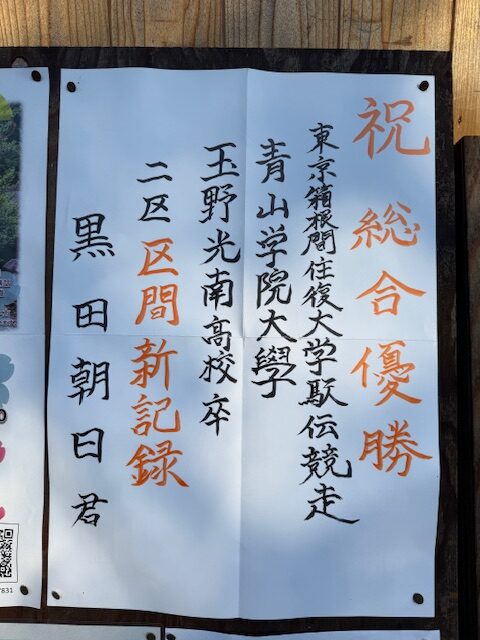 祝 総合優勝
東京箱根間往復大学駅伝競走
青山学院大學
玉野光南高校卒
二区 区間新記録
黒田朝日君
7831